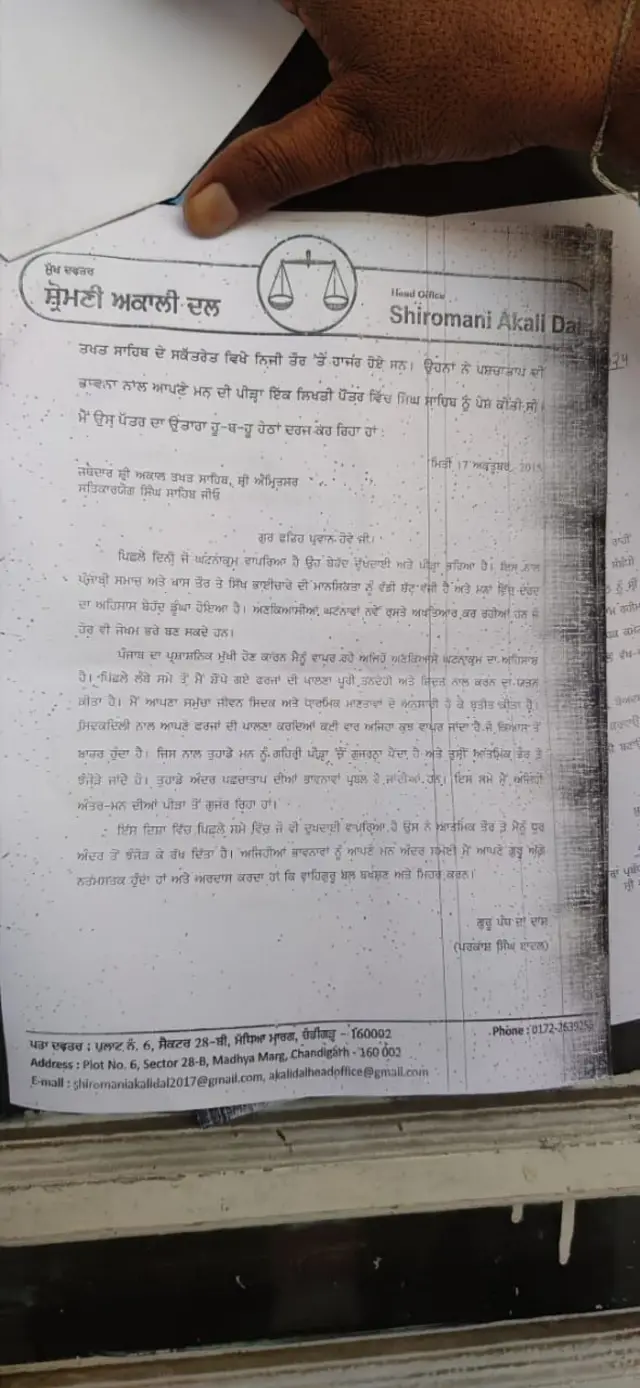 ਮੁੱਖ ਦਫਤਰ
ਸ਼੍ਰੋਮਣੀ ਅਕਾਲੀ ਦਲ
Head Office
Shiromani Akali Dal
ਤਖਤ ਸਾਹਿਬ ਦੇ ਸਕੱਤਰੇਤ ਵਿਖੇ ਨਿਜੀ ਤੌਰ 'ਤੇ ਹਾਜ਼ਰ ਹੋਏ ਸਨ। ਉਹਨਾਂ ਨੇ ਪਸ਼ਚਾਤਾਪ ਦੀ
ਭਾਵਨਾ ਨਾਲ ਆਪਣੇ ਮਨ ਦੀ ਪੀੜ੍ਹਾ ਇੱਕ ਲਿਖਤੀ ਪੱਤਰ ਵਿੱਚ ਸਿੰਘ ਸਾਹਿਬ ਨੂੰ ਪੇਸ਼ ਕੀਤੀ ਸੀ।
ਮੈਂ ਉਸ ਪੱਤਰ ਦਾ ਉਤਾਰਾ ਹੂ-ਬ-ਹੂ ਹੇਠਾਂ ਦਰਜ ਕਰ ਰਿਹਾ ਹਾਂ:
ਮਿਤੀ 17 ਅਕਤੂਬਰ, 2015
ਜਥੇਦਾਰ ਸ਼੍ਰੀ ਅਕਾਲ ਤਖਤ ਸਾਹਿਬ, ਸ਼੍ਰੀ ਅੰਮ੍ਰਿਤਸਰ
ਸਤਿਕਾਰਯੋਗ ਸਿੰਘ ਸਾਹਿਬ ਜੀਓ
ਗੁਰ ਫਤਿਹ ਪ੍ਰਵਾਨ ਹੋਵੇ ਜੀ।
ਪਿਛਲੇ ਦਿਨੀਂ ਜੋ ਘਟਨਾਕ੍ਰਮ ਵਾਪਰਿਆ ਹੈ ਉਹ ਬੇਹੱਦ ਦੁੱਖਦਾਈ ਅਤੇ ਪੀੜਾ ਭਰਿਆ ਹੈ। ਇਸ ਨਾਲ
ਪੰਜਾਬੀ ਸਮਾਜ ਅਤੇ ਖਾਸ ਤੌਰ ਤੇ ਸਿੱਖ ਭਾਈਚਾਰੇ ਦੀ ਮਾਨਸਿਕਤਾ ਨੂੰ ਵੱਡੀ ਸੱਟ ਵੱਜੀ ਹੈ ਅਤੇ ਮਨਾਂ ਵਿੱਚ ਦਰਦ
ਦਾ ਅਹਿਸਾਸ ਬੇਹੱਦ ਡੂੰਘਾ ਹੋਇਆ ਹੈ। ਅਣਕਿਆਸੀਆਂ ਘਟਨਾਵਾਂ ਨਵੇਂ ਰਸਤੇ ਅਖਤਿਆਰ ਕਰ ਰਹੀਆਂ ਹਨ ਜੋ
ਹੋਰ ਵੀ ਜੋਖਮ ਭਰੇ ਬਣ ਸਕਦੇ ਹਨ।
ਪੰਜਾਬ ਦਾ ਪ੍ਰਸ਼ਾਸਨਿਕ ਮੁੱਖੀ ਹੋਣ ਕਾਰਨ ਮੈਨੂੰ ਵਾਪਰ ਰਹੇ ਅਜਿਹੇ ਅਣਕਿਆਸੇ ਘਟਨਾਕ੍ਰਮ ਦਾ ਅਹਿਸਾਸ
ਹੈ। ਪਿਛਲੇ ਲੰਬੇ ਸਮੇਂ ਤੋਂ ਮੈਂ ਸੌਂਪੇ ਗਏ ਫਰਜਾਂ ਦੀ ਪਾਲਣਾ ਪੂਰੀ ਤਨਦੇਹੀ ਅਤੇ ਸ਼ਿੱਦਤ ਨਾਲ ਕਰਨ ਦਾ ਯਤਨ
ਕੀਤਾ ਹੈ। ਮੈਂ ਆਪਣਾ ਸਮੁੱਚਾ ਜੀਵਨ ਸਿਦਕ ਅਤੇ ਧਾਰਮਿਕ ਮਾਣਤਾਵਾਂ ਦੇ ਅਨੁਸਾਰੀ ਹੋ ਕੇ ਬਤੀਤ ਕੀਤਾ ਹੈ।
ਸਿਦਕਦਿਲੀ ਨਾਲ ਆਪਣੇ ਫਰਜਾਂ ਦੀ ਪਾਲਣਾ ਕਰਦਿਆਂ ਕਈ ਵਾਰ ਅਜਿਹਾ ਕੁਝ ਵਾਪਰ ਜਾਂਦਾ ਹੈ ਜੋ ਕਿਆਸ ਤੋਂ
ਬਾਹਰ ਹੁੰਦਾ ਹੈ। ਜਿਸ ਨਾਲ ਤੁਹਾਡੇ ਮਨ ਨੂੰ ਗਹਿਰੀ ਪੀੜ੍ਹਾ 'ਚੋਂ ਗੁਜਰਨਾ ਪੈਂਦਾ ਹੈ ਅਤੇ ਤੁਸੀਂ ਆਤਮਿਕ ਤੌਰ ਤੇ
ਝੰਜੋੜੇ ਜਾਂਦੇ ਹੋ। ਤੁਹਾਡੇ ਅੰਦਰ ਪਛਚਾਤਾਪ ਦੀਆਂ ਭਾਵਨਾਵਾਂ ਪ੍ਰਬਲ ਹੋ ਜਾਂਦੀਆਂ ਹਨ। ਇਸ ਸਮੇਂ ਮੈਂ ਅਜਿਹੀ
ਅੰਤਰ-ਮਨ ਦੀਆਂ ਪੀੜਾ ਤੋਂ ਗੁਜਰ ਰਿਹਾ ਹਾਂ।
ਇਸ ਦਿਸ਼ਾ ਵਿੱਚ ਪਿਛਲੇ ਸਮੇਂ ਵਿੱਚ ਜੋ ਵੀ ਦੁਖਦਾਈ ਵਾਪਰਿਆ ਹੈ ਉਸ ਨੇ ਆਤਮਿਕ ਤੌਰ ਤੇ ਮੈਨੂੰ ਧੁਰ
ਅੰਦਰ ਤੋਂ ਝੰਜੋੜ ਕੇ ਰੱਖ ਦਿੱਤਾ ਹੈ। ਅਜਿਹੀਆਂ ਭਾਵਨਾਵਾਂ ਨੂੰ ਆਪਣੇ ਮਨ ਅੰਦਰ ਸਮੋਈ ਮੈਂ ਆਪਣੇ ਗੁਰੂ ਅੱਗੇ
ਨਤਮਸਤਕ ਹੁੰਦਾ ਹਾਂ ਅਤੇ ਅਰਦਾਸ ਕਰਦਾ ਹਾਂ ਕਿ ਵਾਹਿਗੁਰੂ ਬਲ ਬਖਸ਼ਣ ਅਤੇ ਮਿਹਰ ਕਰਨ।
ਗੁਰੂ ਪੰਥ ਦਾ ਦਾਸ
(ਪਰਕਾਸ਼ ਸਿੰਘ ਬਾਦਲ)
ਪਤਾ ਦਫਤਰ : ਪਲਾਟ ਨੰ. 6, ਸੈਕਟਰ 28-ਬੀ, ਮੱਧਿਆ ਮਾਰਗ, ਚੰਡੀਗੜ੍ਹ - 160002
Phone : 0172-2639256
Address : Plot No. 6, Sector 28-B, Madhya Marg, Chandigarh - 160 002
E-mail : shiromaniakalidal2017@gmail.com, akalidalheadoffice@gmail.com